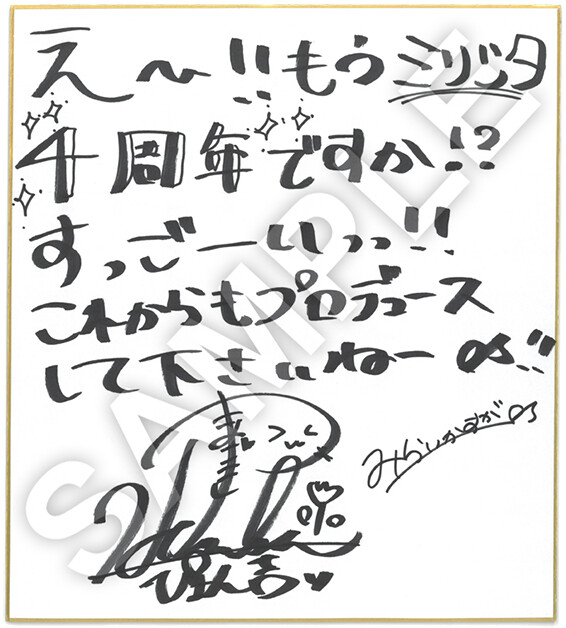 え〜!!もうミリシタ
4周年ですか!?
すっごーいっっ!!
これからもプロデュース
して下さいねー!!
みらいかすが
ぴょん吉♥
SAMPLE